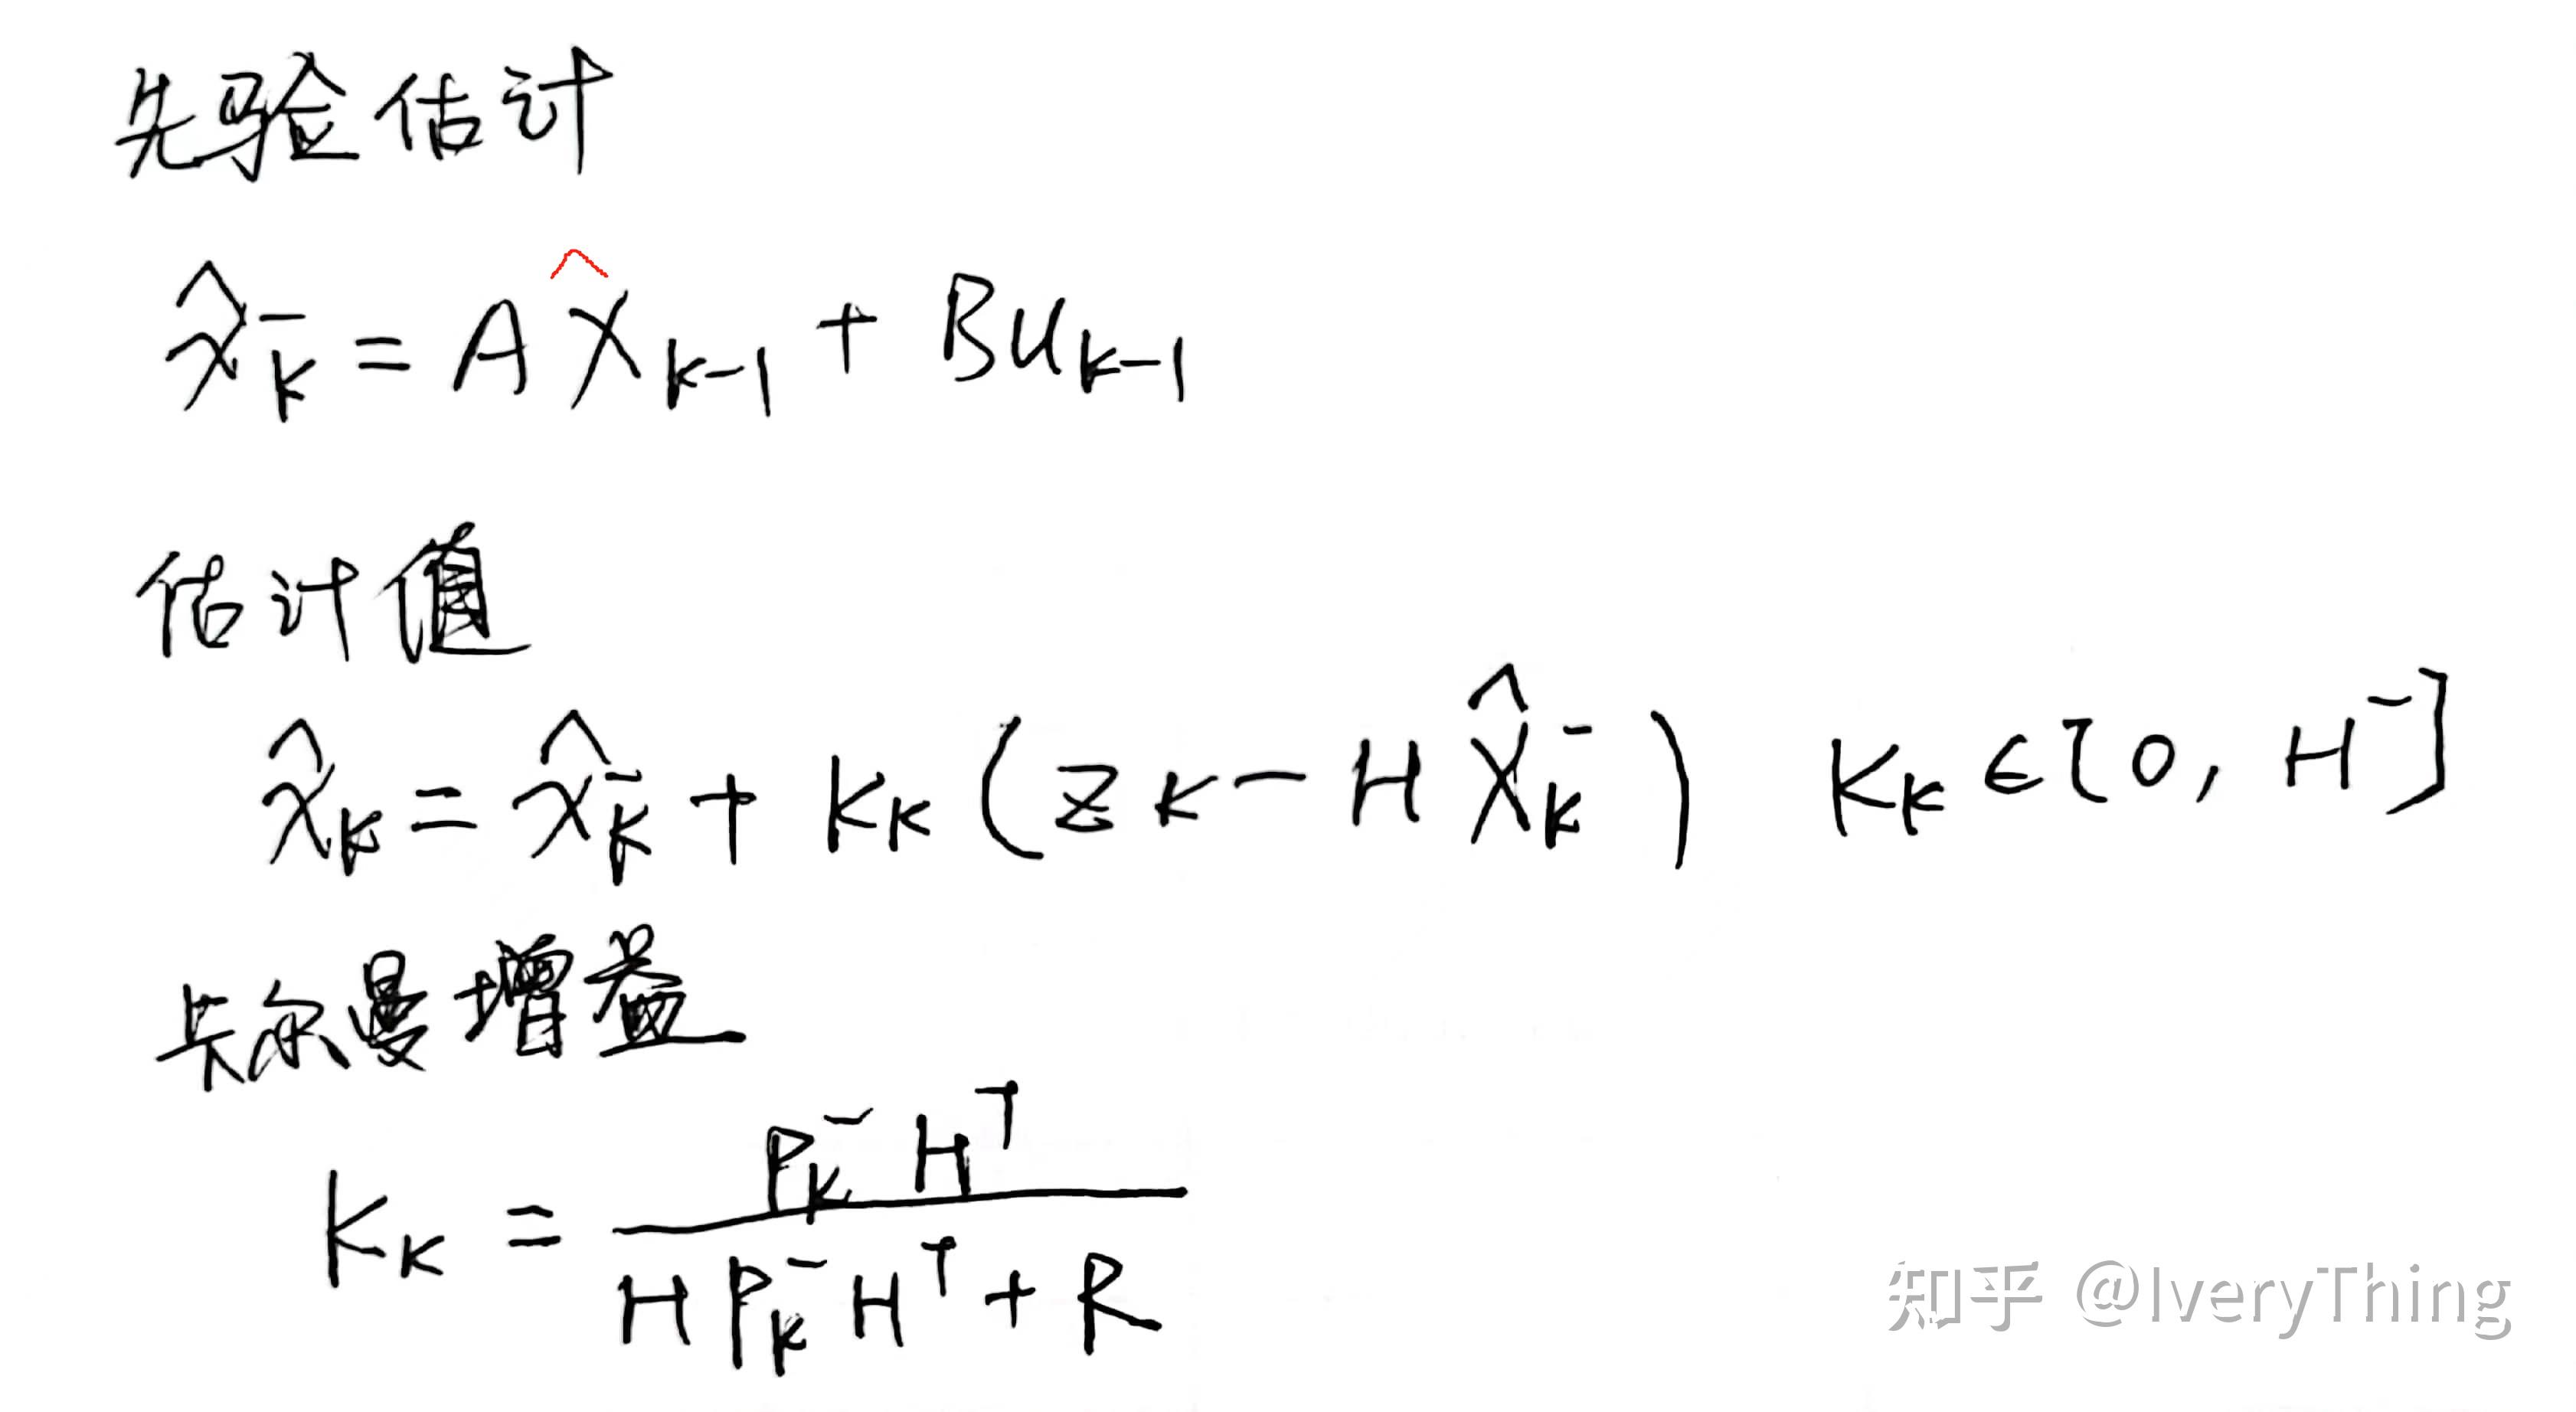 先验估计
x̂ₖ⁻ = A x̂ₖ₋₁ + B uₖ₋₁
估计值
x̂ₖ = x̂ₖ⁻ + Kₖ (zₖ − H x̂ₖ⁻) Kₖ ∈ [0, H⁻]
卡尔曼增益
Kₖ = Pₖ⁻ Hᵀ / (H Pₖ⁻ Hᵀ + R)
知乎 @IveryThing